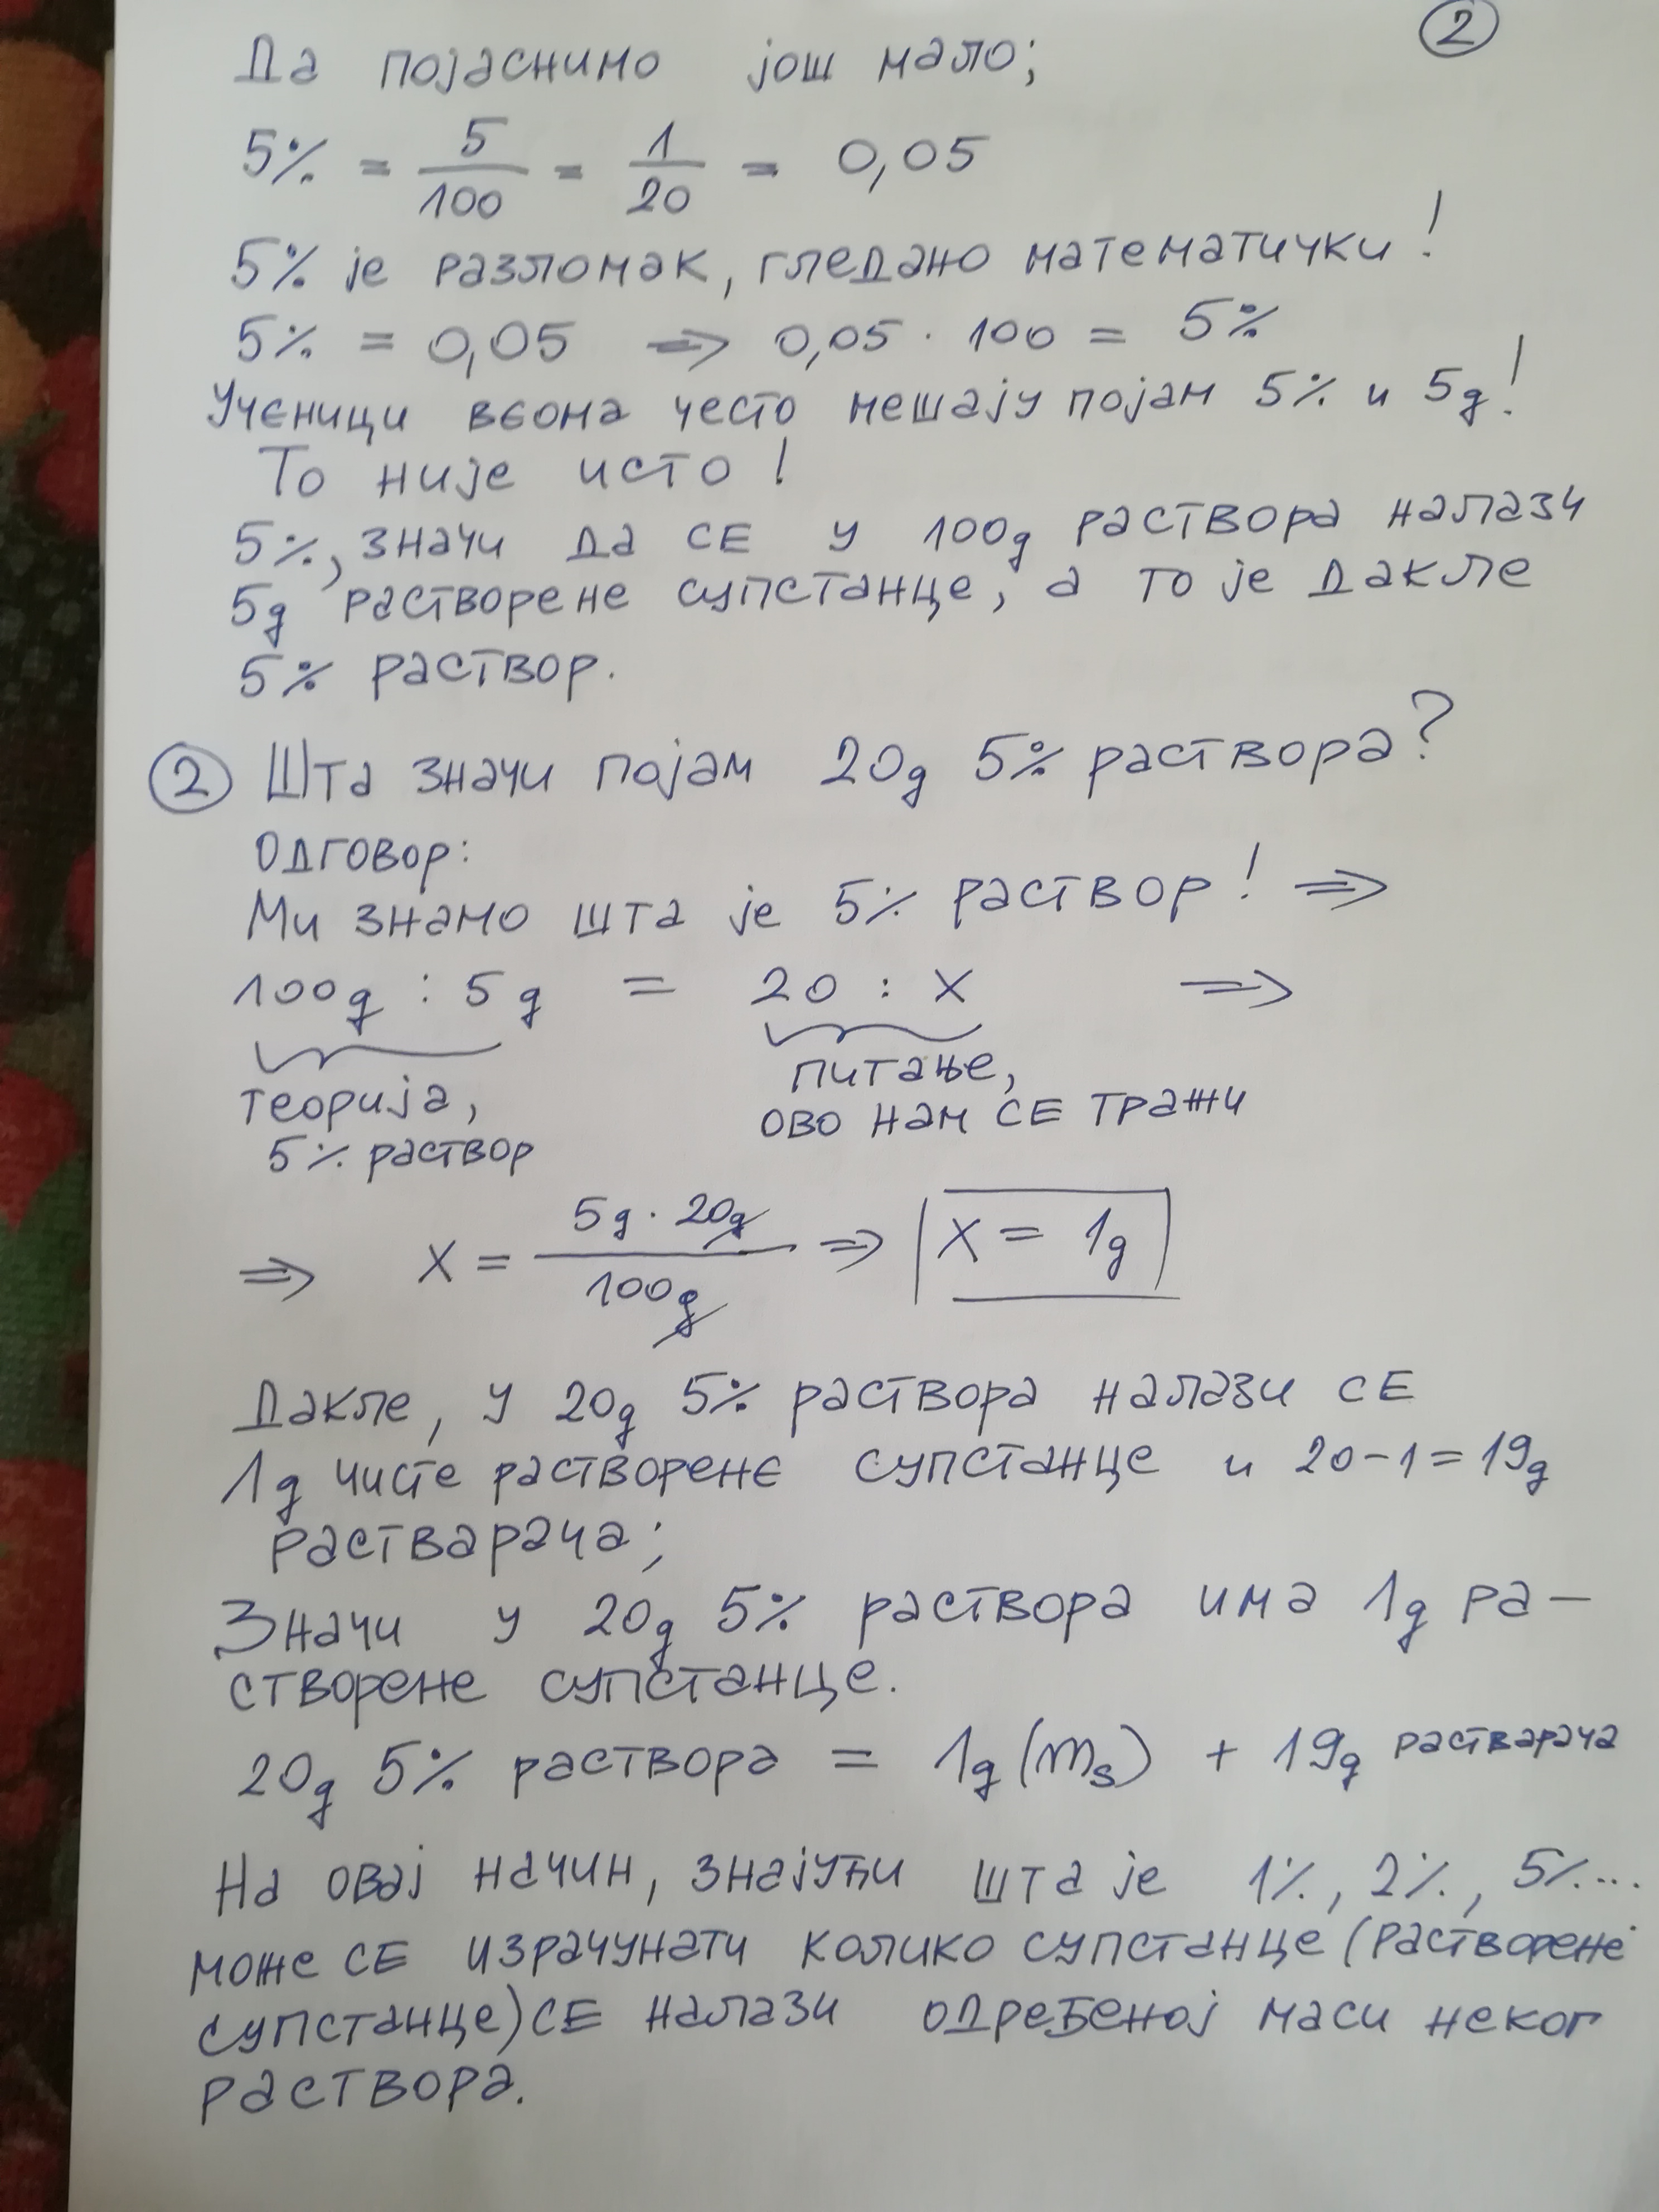 2
Да појаснимо још мало;
5% = 5/100 = 1/20 = 0,05
5% је разломак, гледано математички!
5% = 0,05 => 0,05 · 100 = 5%
Ученици веома често мешају појам 5% и 5g!
То није исто!
5%, значи да се у 100g раствора налази
5g растворене супстанце, а то је дакле
5% раствор.
2 Шта значи појам 20g 5% раствора?
Одговор:
Ми знамо шта је 5% раствор! =>
100g : 5g = 20 : X =>
теорија,
5% раствор
питање,
ово нам се тражи
=> X = 5g · 20g / 100g => X = 1g
Дакле, у 20g 5% раствора налази се
1g чисте растворене супстанце и 20-1=19g
растварача;
Значи у 20g 5% раствора има 1g ра-
створене супстанце.
20g 5% раствора = 1g (ms) + 19g растварача
На овај начин, знајући шта је 1%, 2%, 5%...
може се израчунати колико супстанце (растворене
супстанце) се налази одређеној маси неког
раствора.